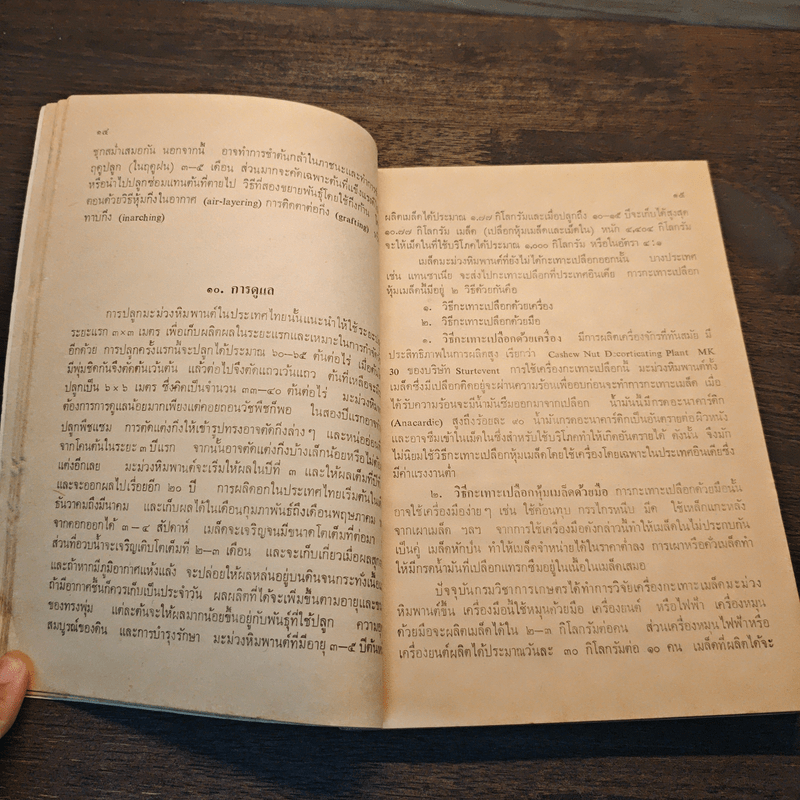 ๑๔
ชุกสม่ำเสมอกัน นอกจากนี้ อาจทำการชำต้นกล้าในภาชนะและทำการ
ฤดูปลูก (ในฤดูฝน) ๓—๕ เดือน ส่วนมากจะคัดเฉพาะต้นที่แข็งแรง
หรือนำไปปลูกซ่อมแทนต้นที่ตายไป วิธีที่สองขยายพันธุ์โดยใช้กิ่งก้าน
ตอนด้วยวิธีหุ้มกิ่งในอากาศ (air-layering) การติดตาต่อกิ่ง (grafting)
ทาบกิ่ง (inarching)
๑๐. การดูแล
การปลูกมะม่วงหิมพานต์ในประเทศไทยนั้นแนะนำให้ใช้ระยะ
ระยะแรก ๓×๓ เมตร เพื่อเก็บผลิตผลในระยะแรกและเหมาะในการกำจัด
อีกด้วย การปลูกครั้งแรกนี้จะปลูกได้ประมาณ ๖๐—๖๕ ต้นต่อไร่ เมื่อต้น
มีพุ่มชิดกันจึงตัดต้นเว้นต้น แล้วต่อไปจึงตัดแถวเว้นแถว ต้นที่เหลือจะมี
ปลูกเป็น ๖×๖ เมตร ซึ่งคิดเป็นจำนวน ๓๓—๔๐ ต้นต่อไร่ มะม่วงหิม
ต้องการการดูแลน้อยมากเพียงแต่คอยถอนวัชพืชก็พอ ในสองปีแรกอาจ
ปลูกพืชแซม การตัดแต่งกิ่งให้เข้ารูปทรงอาจตัดกิ่งล่างๆ และหน่ออ่อน
จากโคนต้นในระยะ ๓ ปีแรก จากนั้นอาจตัดแต่งกิ่งบ้างเล็กน้อยหรือไม่ต้อง
แต่งอีกเลย มะม่วงหิมพานต์จะเริ่มให้ผลในปีที่ ๓ และให้ผลเต็มที่
และจะออกผลไปเรื่อยอีก ๒๐ ปี การผลิดอกในประเทศไทยเริ่มต้นใน
ธันวาคมถึงมีนาคม และเก็บผลได้ในเดือนกุมภาพันธ์ถึงเดือนพฤษภาคม
จากดอกออกได้ ๓—๔ สัปดาห์ เมล็ดจะเจริญจนมีขนาดโตเต็มที่ต่อมา
ส่วนที่อวบน้ำจะเจริญเติบโตเต็มที่ ๒—๓ เดือน และจะเก็บเกี่ยวเมื่อผลสุก
และถ้าหากมีภูมิอากาศแห้งแล้ง จะปล่อยให้ผลหล่นอยู่บนดินจนกระทั่งเนื้อ
ถ้ามีอากาศชื้นก็ควรเก็บเป็นประจำวัน ผลผลิตที่ได้จะเพิ่มขึ้นตามอายุและ
ของทรงพุ่ม แต่ละต้นจะให้ผลมากน้อยขึ้นอยู่กับพันธุ์ที่ใช้ปลูก ความ
สมบูรณ์ของดิน และการบำรุงรักษา มะม่วงหิมพานต์ที่มีอายุ ๓—๕ ปีต้น
๑๕
ผลิตเมล็ดได้ประมาณ ๑.๗๗ กิโลกรัมและเมื่อปลูกถึง ๑๐—๑๕ ปีจะเก็บได้สูงสุด
๑๐.๗๗ กิโลกรัม เมล็ด (เปลือกหุ้มเมล็ดและเม็ดใน) หนัก ๔,๔๐๔ กิโลกรัม
จะให้เม็ดในที่ใช้บริโภคได้ประมาณ ๑,๐๐๐ กิโลกรัม หรือในอัตรา ๔ : ๑
เมล็ดมะม่วงหิมพานต์ที่ยังไม่ได้กะเทาะเปลือกออกนั้น บางประเทศ
เช่น แทนซาเนีย จะส่งไปกะเทาะเปลือกที่ประเทศอินเดีย การกะเทาะเปลือก
หุ้มเมล็ดนี้มีอยู่ ๒ วิธีด้วยกันคือ
๑. วิธีกะเทาะเปลือกด้วยเครื่อง
๒. วิธีกะเทาะเปลือกด้วยมือ
๑. วิธีกะเทาะเปลือกด้วยเครื่อง มีการผลิตเครื่องจักรที่ทันสมัย มี
ประสิทธิภาพในการผลิตสูง เรียกว่า Cashew Nut Decorticating Plant MK
30 ของบริษัท Sturtevent การใช้เครื่องกะเทาะเปลือกนี้ มะม่วงหิมพานต์ทั้ง
เมล็ดซึ่งมีเปลือกติดอยู่จะผ่านความร้อนเพื่ออบก่อนจะทำการกะเทาะเมล็ด เมื่อ
ได้รับความร้อนจะมีน้ำมันซึมออกมาจากเปลือก น้ำมันนี้มีกรดอะนาคาร์ดิก
(Anacardic) สูงถึงร้อยละ ๙๐ น้ำมันกรดอะนาคาร์ดิกเป็นอันตรายต่อผิวหนัง
และอาจซึมเข้าในเม็ดในซึ่งสำหรับใช้บริโภคทำให้เกิดอันตรายได้ ดังนั้น จึงมัก
ไม่นิยมใช้วิธีกะเทาะเปลือกหุ้มเมล็ดโดยใช้เครื่องโดยเฉพาะในประเทศอินเดียซึ่ง
มีค่าแรงงานต่ำ
๒. วิธีกะเทาะเปลือกหุ้มเมล็ดด้วยมือ การกะเทาะเปลือกด้วยมือนั้น
อาจใช้เครื่องมือง่ายๆ เช่น ใช้ค้อนทุบ กรรไกรหนีบ มีด ใช้เหล็กแกะหลัง
จากเผาเมล็ด ฯลฯ จากการใช้เครื่องมือดังกล่าวนี้ทำให้เมล็ดในไม่ประกบกัน
เป็นคู่ เมล็ดหักป่น ทำให้เมล็ดจำหน่ายได้ในราคาต่ำลง การเผาหรือคั่วเมล็ดทำ
ให้มีกรดน้ำมันที่เปลือกแทรกซึมอยู่ในเนื้อในเมล็ดเสมอ
ปัจจุบันกรมวิชาการเกษตรได้ทำการวิจัยเครื่องกะเทาะเมล็ดมะม่วง
หิมพานต์ขึ้น เครื่องมือนี้ใช้หมุนด้วยมือ เครื่องยนต์ หรือไฟฟ้า เครื่องหมุน
ด้วยมือจะผลิตเมล็ดได้ใน ๒—๓ กิโลกรัมต่อคน ส่วนเครื่องหมุนไฟฟ้าหรือ
เครื่องยนต์ผลิตได้ประมาณวันละ ๓๐ กิโลกรัมต่อ ๑๐ คน เมล็ดที่ผลิตได้จะ